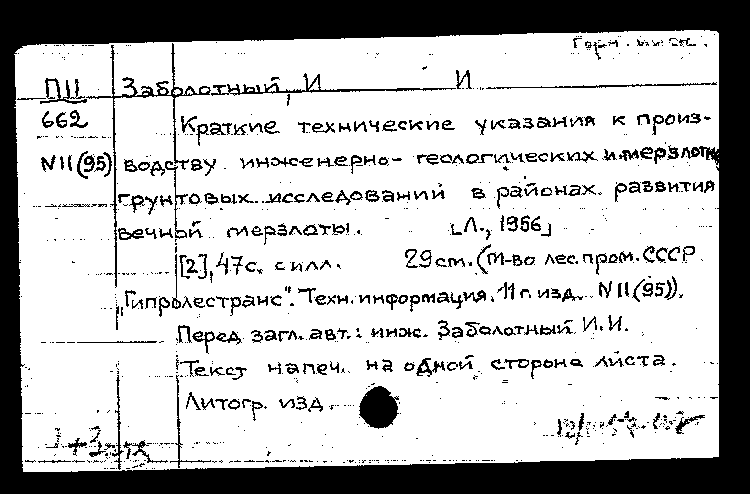 Горн.
П11 Заболотный, И И
662 Краткие технические указания к произ-
N11(95) водству инженерно-геологических и мерзлотно
грунтовых исследований в районах развития
вечной мерзлоты. [Л., 1956]
[2], 47с. с илл. 29см. (М-во лес. пром. СССР
"Гипролестранс". Техн. информация. 11 г. изд. N11(95)).
Перед загл. авт.: инж. Заболотный И.И.
Текст напеч. на одной стороне листа.
Литогр. изд.